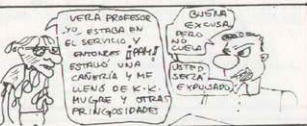 VERÁ PROFESOR
YO, ESTABA EN
EL SERVICIO Y
ENTONCES ¡¡PAM!!
ESTALLÓ UNA
CAÑERÍA Y ME
LLENÓ DE K.K.
MUGRE Y OTRAS
PRINGOSIDADES
BUENA
EXCUSA,
PERO
NO
CUELA
USTED
SERÁ
EXPULSADO